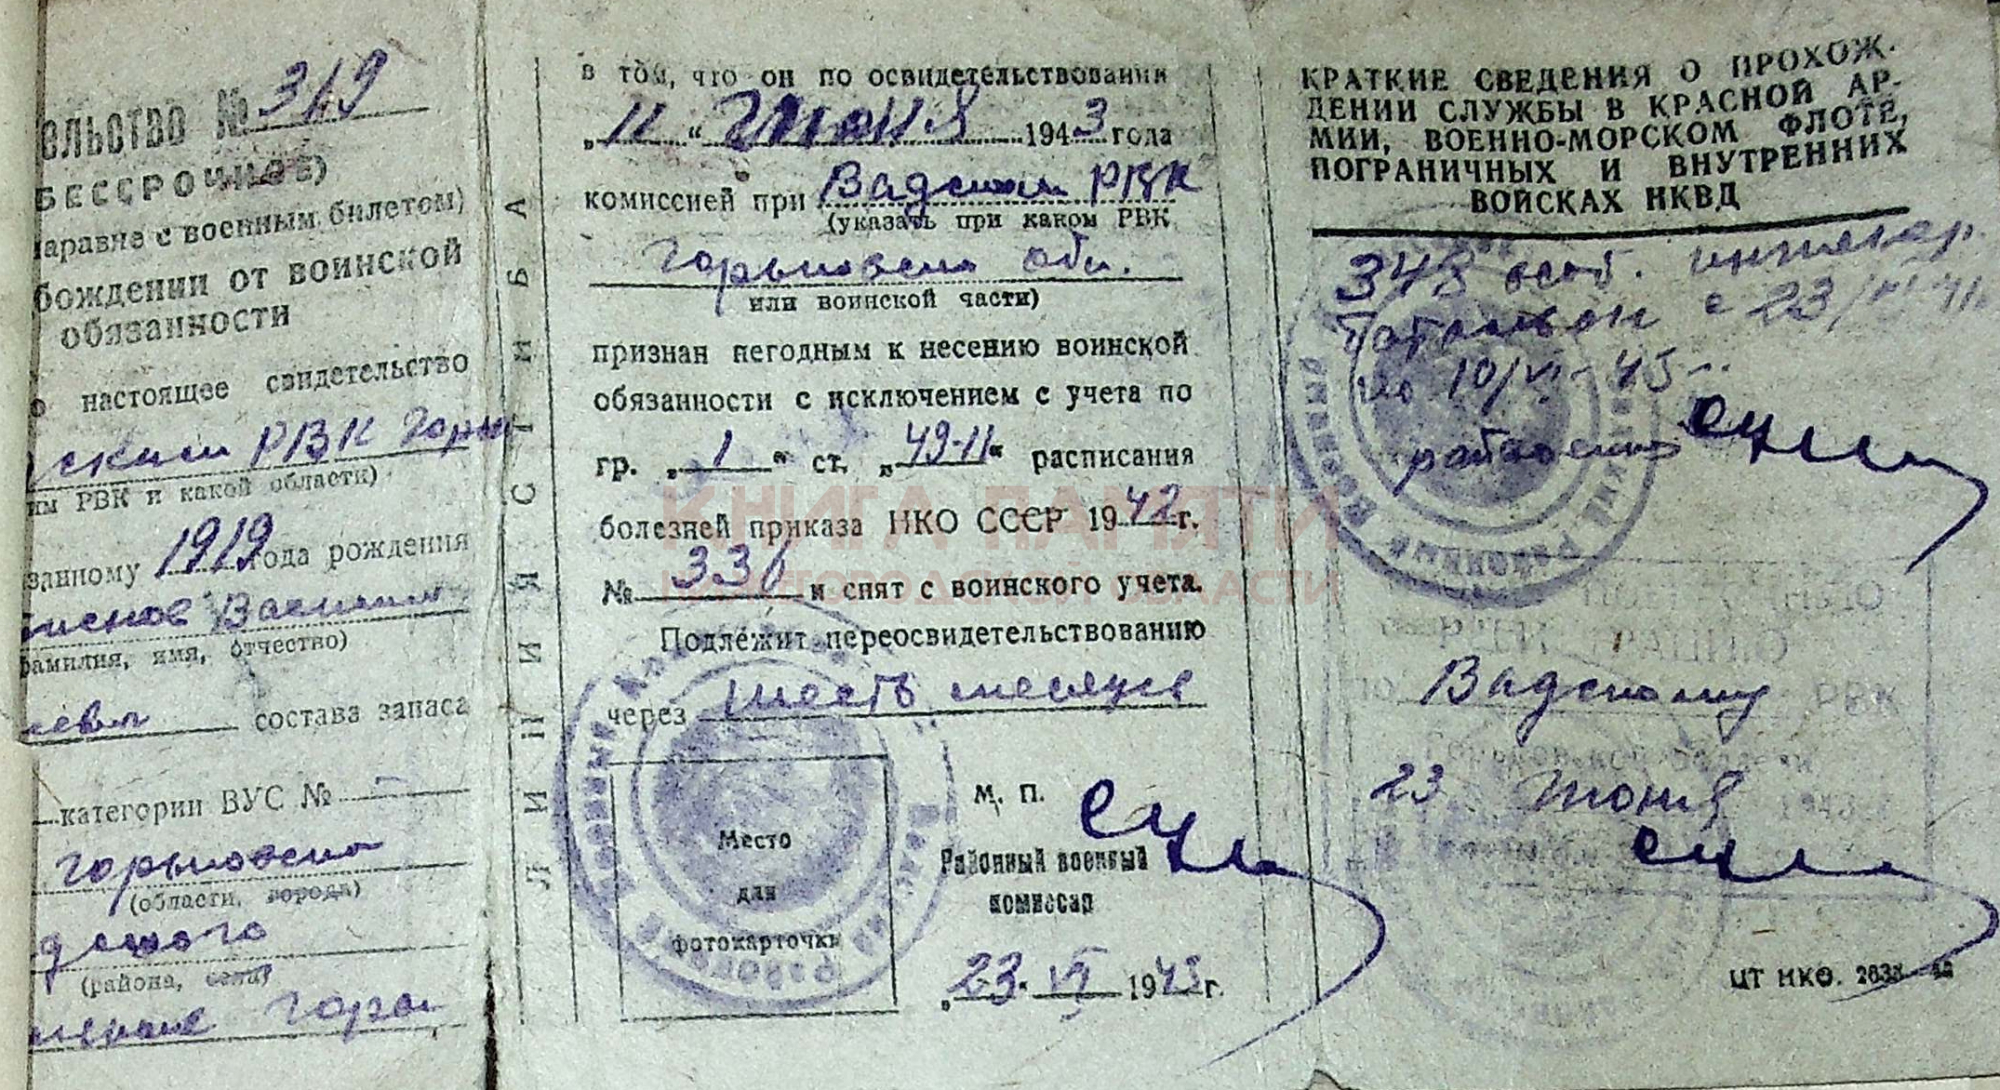 ельство № 319
БЕССРОЧНОЕ)
наравне с военным билетом)
бождении от воинской
обязанности
о настоящее свидетельство
ским РВК Горьк
им РВК и какой области)
занному 1919 года рождения
Василий
фамилия, имя, отчество)
состава запаса
категории ВУС № —
Горьковской
(области, города)
дского
(района, села)
ЛИНИЯ СГИБА
в том, что он по освидетельствовании
„11“ Июня 1943 года
комиссией при Вадском РВК
(указать при каком РВК
Горьковской обл.
или воинской части)
признан негодным к несению воинской
обязанности с исключением с учета по
гр. „1“ ст. „49-II“ расписания
болезней приказа НКО СССР 1942 г.
№ 336 и снят с воинского учета.
Подлежит переосвидетельствованию
через шесть месяцев
Место
для
фотокарточки
М. П.
Районный военный
комиссар
„23. VI 1943 г.
КРАТКИЕ СВЕДЕНИЯ О ПРОХОЖ-
ДЕНИИ СЛУЖБЫ В КРАСНОЙ АР-
МИИ, ВОЕННО-МОРСКОМ ФЛОТЕ,
ПОГРАНИЧНЫХ И ВНУТРЕННИХ
ВОЙСКАХ НКВД
348 особ. инженер.
батальон с 23/
по 10/VI-43
по Вадскому РВК
23 Июня
ЦТ НКО. 2633
КНИГА ПАМЯТИ
НИЖЕГОРОДСКОЙ ОБЛАСТИ